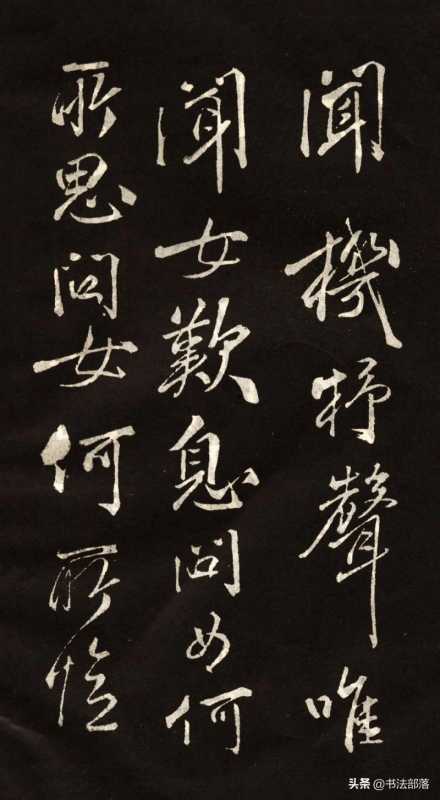 聞機杼聲唯
聞女歎息問女何
所思問女何所憶
头条 @书法部落